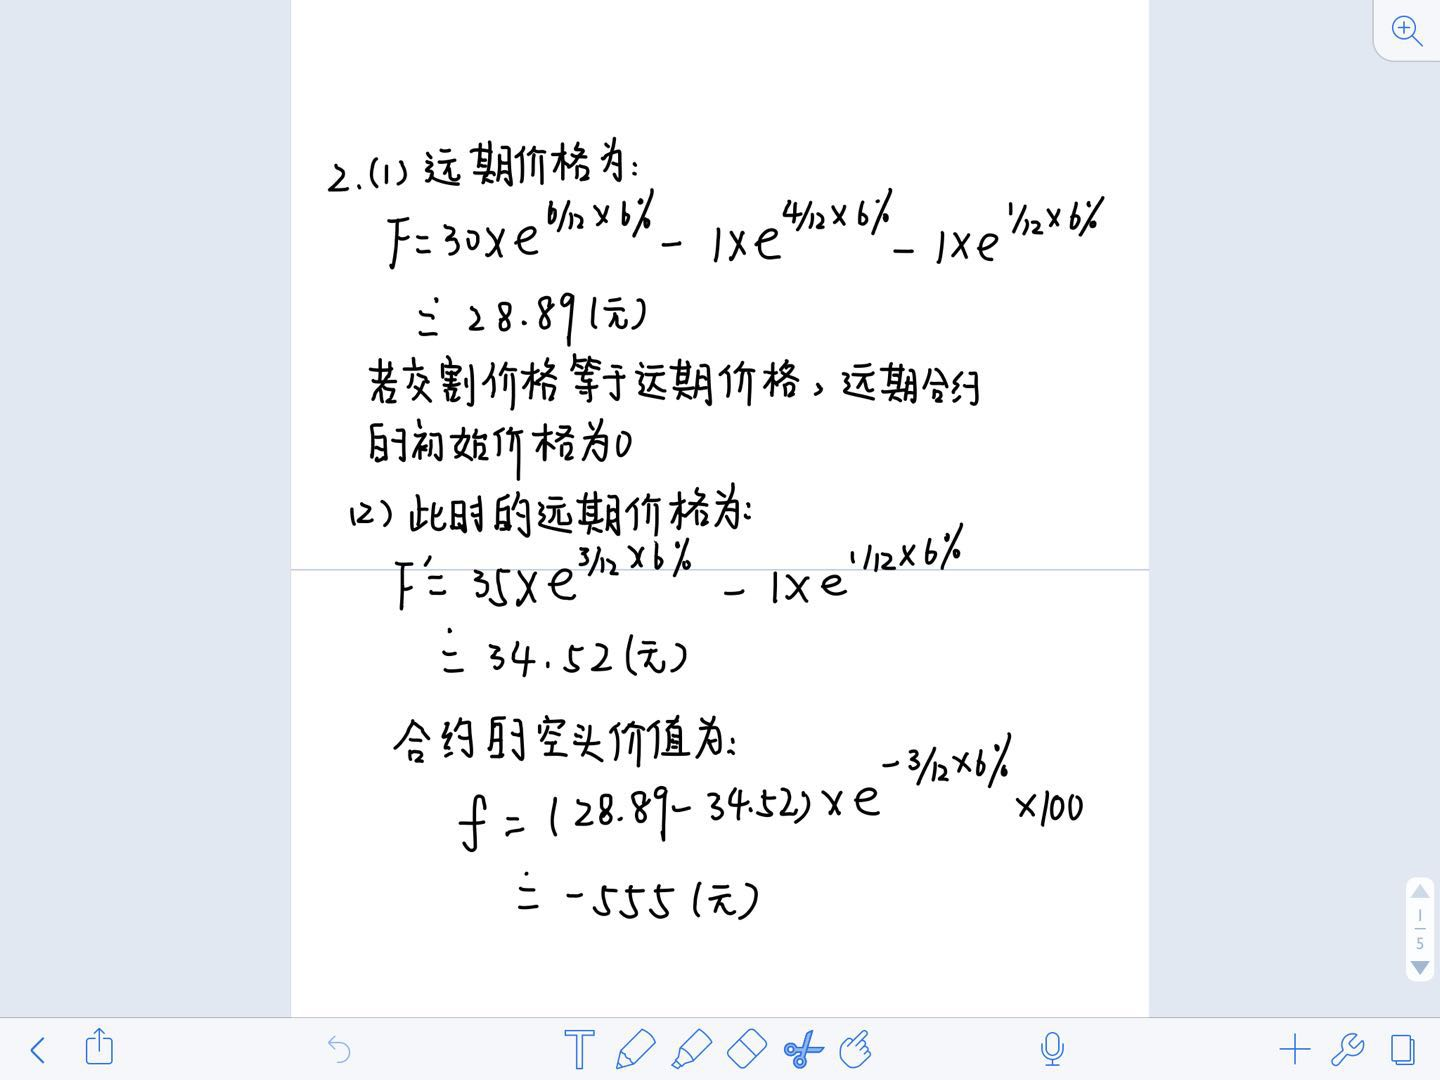 2.(1) 远期价格为:
F=30×e^{6/12×6%} - 1×e^{4/12×6%} - 1×e^{1/12×6%}
≐ 28.89(元)
若交割价格等于远期价格,远期合约
的初始价格为0
(2) 此时的远期价格为:
F'= 35×e^{3/12×6%} - 1×e^{1/12×6%}
≐ 34.52(元)
合约的空头价值为:
f = (28.89-34.52)×e^{-3/12×6%}×100
≐ -555(元)
1
5
T